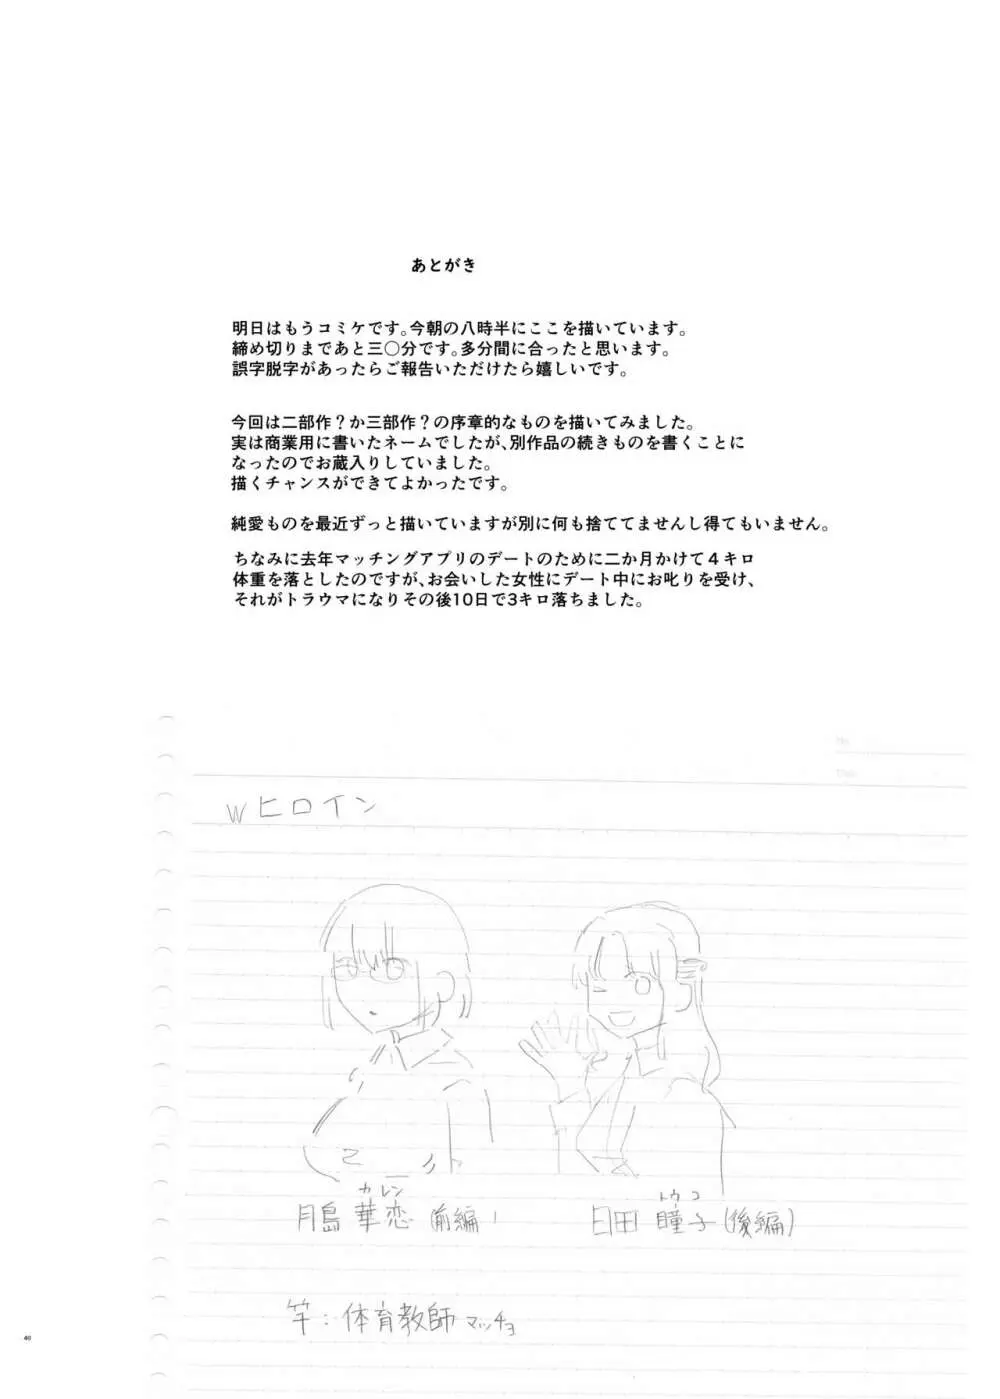 あとがき
明日はもうコミケです。今朝の八時半にここを描いています。
締め切りまであと三〇分です。多分間に合ったと思います。
誤字脱字があったらご報告いただけたら嬉しいです。
今回は二部作？か三部作？の序章的なものを描いてみました。
実は商業用に書いたネームでしたが、別作品の続きものを書くことに
なったのでお蔵入りしていました。
描くチャンスができてよかったです。
純愛ものを最近ずっと描いていますが別に何も捨ててませんし得てもいません。
ちなみに去年マッチングアプリのデートのために二か月かけて４キロ
体重を落としたのですが、お会いした女性にデート中にお叱りを受け、
それがトラウマになりその後10日で3キロ落ちました。
Wヒロイン
カレン
月島 華恋 (前編)
トウコ
日田 瞳子 (後編)
竿：体育教師 マッチョ
40